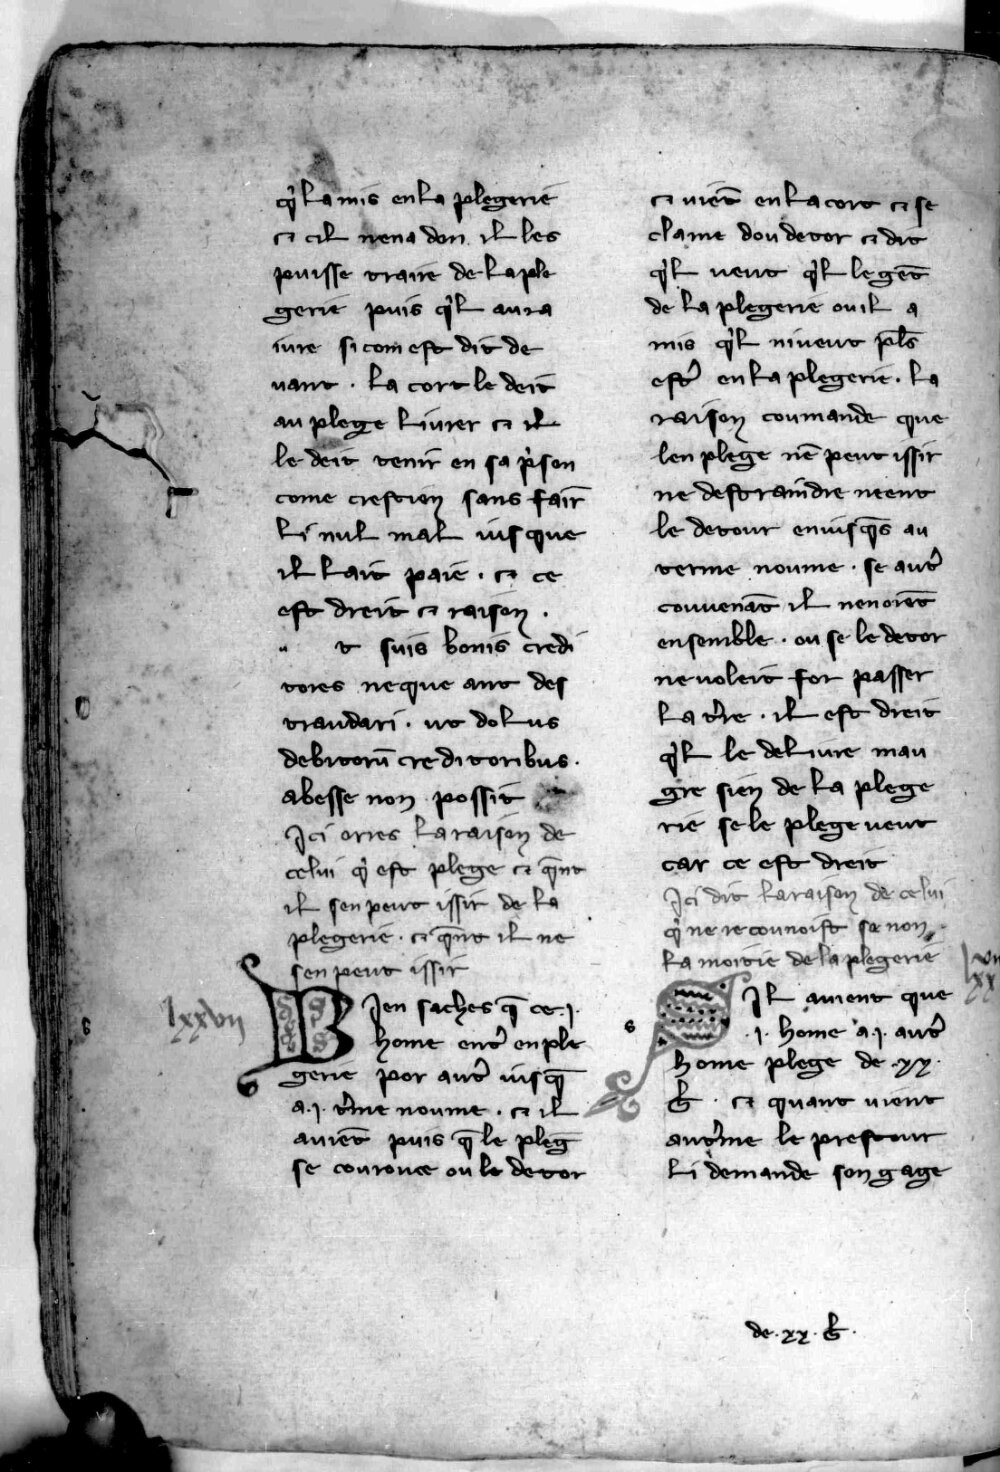 q̇ la mis en la plegerie
⁊ cil nena don il les
puisse traire de la ple
gerie puis q̇l aura
iure si com est dit de
uant . la cort le deit
au plege liurer ⁊ il
le deit tenir en sa p̓son
come crestien sans fair̄
li nul mal iusque
il lait paie . ⁊ ce
est dreit ⁊ raison .
t suis bonis credi
tores neque aut des
traudari . ut dolus
debitorū creditoribus .
abesse non possit
Ici orres la raison de
celui q̇ est plege ⁊ q̄nt
il sen peut issir de la
plegerie . ⁊ q̄nt il ne
sen peut issir
lxxvii
BIen saches q̄ ce .i.
home entˀ en ple
gerie por autˀ iusq̄
a .i. tˀme noume . ⁊ il
auiēt puis q̄ le pleḡ
se courouce ou le detor
⁊ uiēt en la cort ⁊ se
clame dou detor ⁊ dit
q̇l ueut q̇l le gēt
de la plegerie ou il a
mis q̇l ni ueut pl̄s
estˀ en la plegerie . la
raison coumande que
len plege nē peut issir
ne destraindre neent
le detour en iusq̄s au
terme noume . se autˀ
couuenāt il nen oiēt
ensemble . ou se le detor
ne uoleit for passer
la tˀre . il est dreit
q̇l le deliure mau
gre sien de la plege
rie se le plege ueut
car ce est dreit
Ici dit la raison de celui
q̇ ne reconnoist se non
la moitie de la plegerie
SIl auient que
.i. home a .i. autˀ
home plege de .xx.
b̄ . ⁊ quant uient
au tˀme le prestour
li demande son gage
de .xx. b̄ .